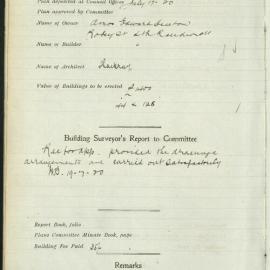 Plan deposited at Council Office July 17-20
Plan approved by Committee
Name of Owner Amos Edward
Robey St Sth Kensington
Name of Builder "
Name of Architect
Value of Buildings to be erected £
Building Surveyor's Report to Committee
Rec for app. provided the drainage
arrangements are carried out satisfactorily
19-7-20
Report Book, folio
Plans Committee Minute Book, page
Building Fee Paid 25/-
Remarks